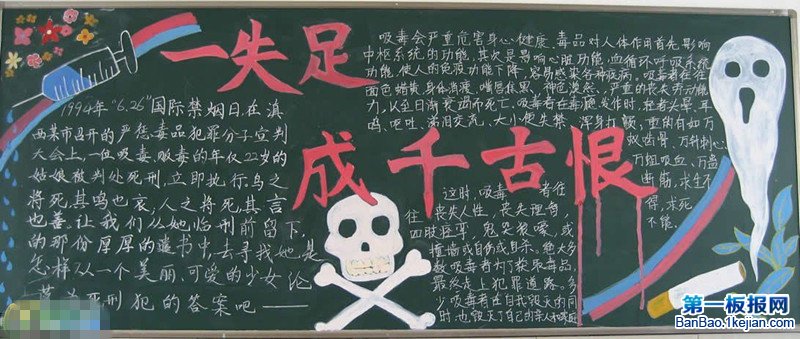 一失足
成千古恨
1994年“6.26”国际禁烟日,在滇
西某市召开的严惩毒品犯罪分子宣判
大会上,一位吸毒贩毒的年仅22岁的
姑娘被判处死刑,立即执行。鸟之
将死,其鸣也哀,人之将死其言
也善。让我们从她临刑前留下
的那份厚厚的遗书中,去寻找她是
怎样从一个美丽、可爱的少女沦
落为死刑犯的答案吧——
吸毒会严重危害身心健康、毒品对人体作用首先影响
中枢系统的功能,其次是影响心脏功能,血循环呼吸系统
功能,使人的免疫功能下降,容易感染各种疾病。吸毒者往往
面色蜡黄,身体消瘦,嘴唇焦黑,神色漠然、严重的丧失劳动能
力,以至日渐衰竭而死亡。吸毒者在毒瘾发作时,轻者头晕、耳
鸣、呕吐、涕泪交流,大小便失禁,浑身打颤,重的有如万
蚁啮骨,万针刺心
万蛆吸血,万
断筋,求生不
得,求死
不能。
这时,吸毒者往
往丧失人性,丧失理智,
四肢痉挛,鬼哭狼嚎,或
撞墙或自伤或自杀。绝大多
数吸毒者为了获取毒品,
最终走上犯罪道路。多
少吸毒者在自我毁灭的同
时,也毁灭了自己的亲人和家庭
第一板报网
BanBao.1kejian.com